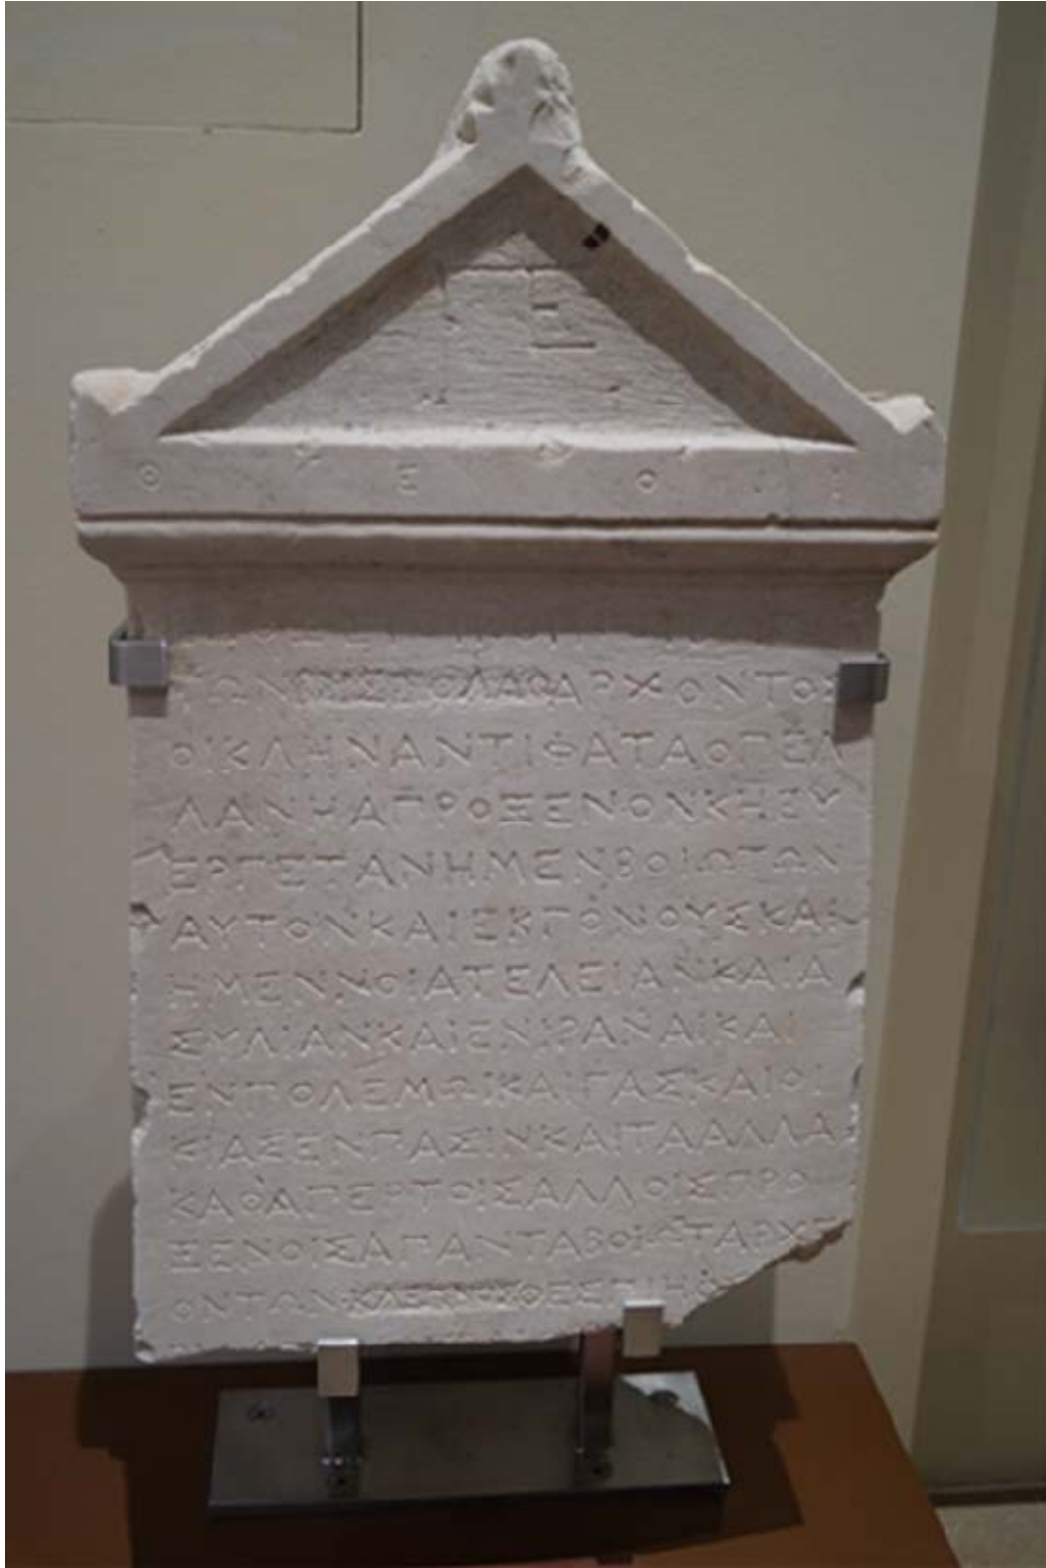 Θ Ε Ο Ι
ΑΡΧΟΝΤΟΣ
ΟΙΚΛΗΝΑΝΤΙΦΑΤΑΟΠΕΛ
ΛΑΝΗΑΠΡΟΞΕΝΟΝΚΗΕΥ
ΕΡΓΕΤΑΝΗΜΕΝΒΟΙΩΤΩΝ
ΑΥΤΟΝΚΑΙΕΚΓΟΝΟΥΣΚΑΙ
ΗΜΕΝΝΟΙΑΤΕΛΕΙΑΝΚΑΙΑ
ΣΥΛΙΑΝΚΑΙΕΝΙΡΑΝΑΙΚΑΙ
ΕΝΠΟΛΕΜΩΙΚΑΙΓΑΣΚΑΙΟΙ
ΚΙΑΣΕΝΠΑΣΙΝΚΑΙΤΑΑΛΛΑ
ΚΑΘΑΠΕΡΤΟΙΣΑΛΛΟΙΣΠΡΟ
ΞΕΝΟΙΣΑΠΑΝΤΑΒΟΙΩΤΑΡΧΙ
ΟΝΤΩΝ